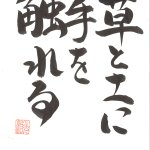 草と土に
手を
触れる